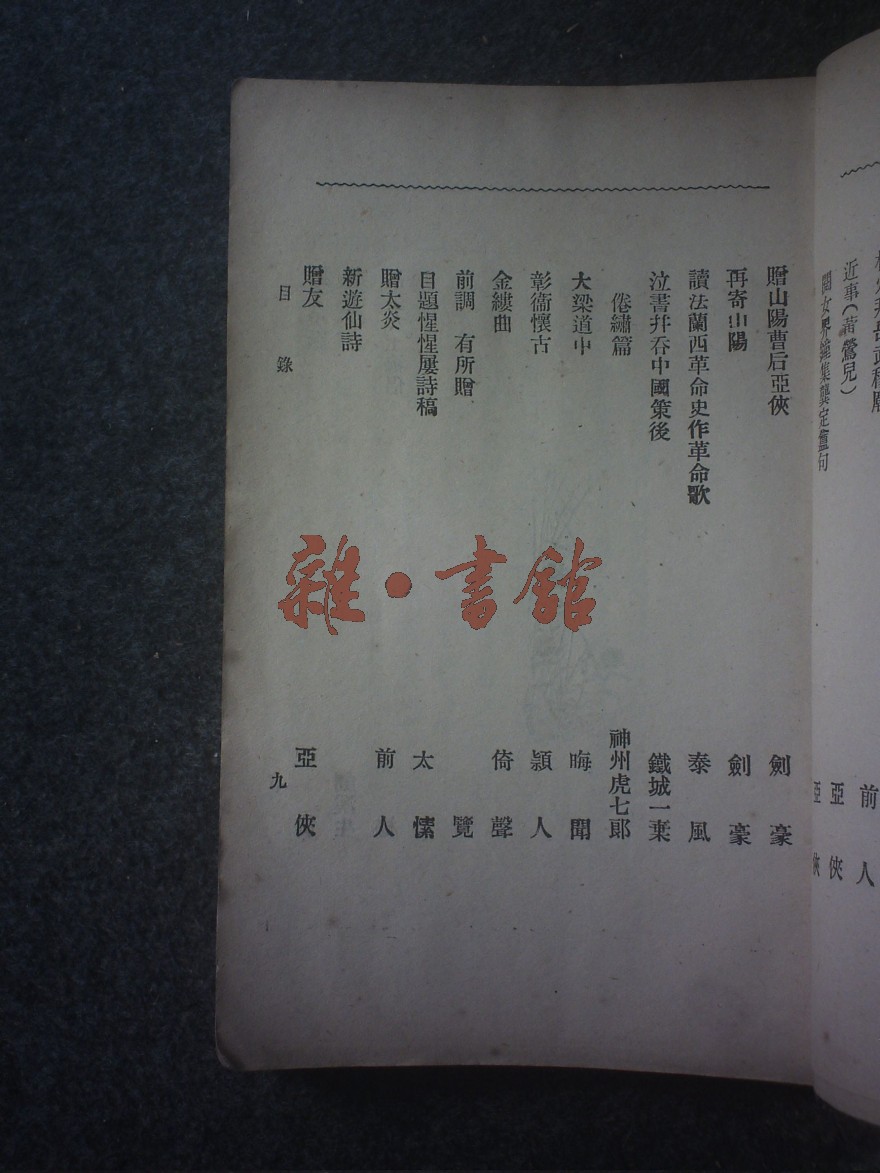 近事（黃鶯兒）
閱女界鐘集龔定盦句
前人
亞俠
亞俠
贈山陽曹后亞俠 劍豪
再寄山陽 劍豪
讀法蘭西革命史作革命歌 泰風
泣書幷吞中國策後 鐵城一乗
倦繡篇 神州虎七郞
大梁道中 晦聞
彰衞懷古 穎人
金縷曲 倚聲
前調 有所贈 覽
目題惺惺屢詩稿 太愫
贈太炎 前人
新遊仙詩
贈友 亞俠
目錄
九
雜·書館